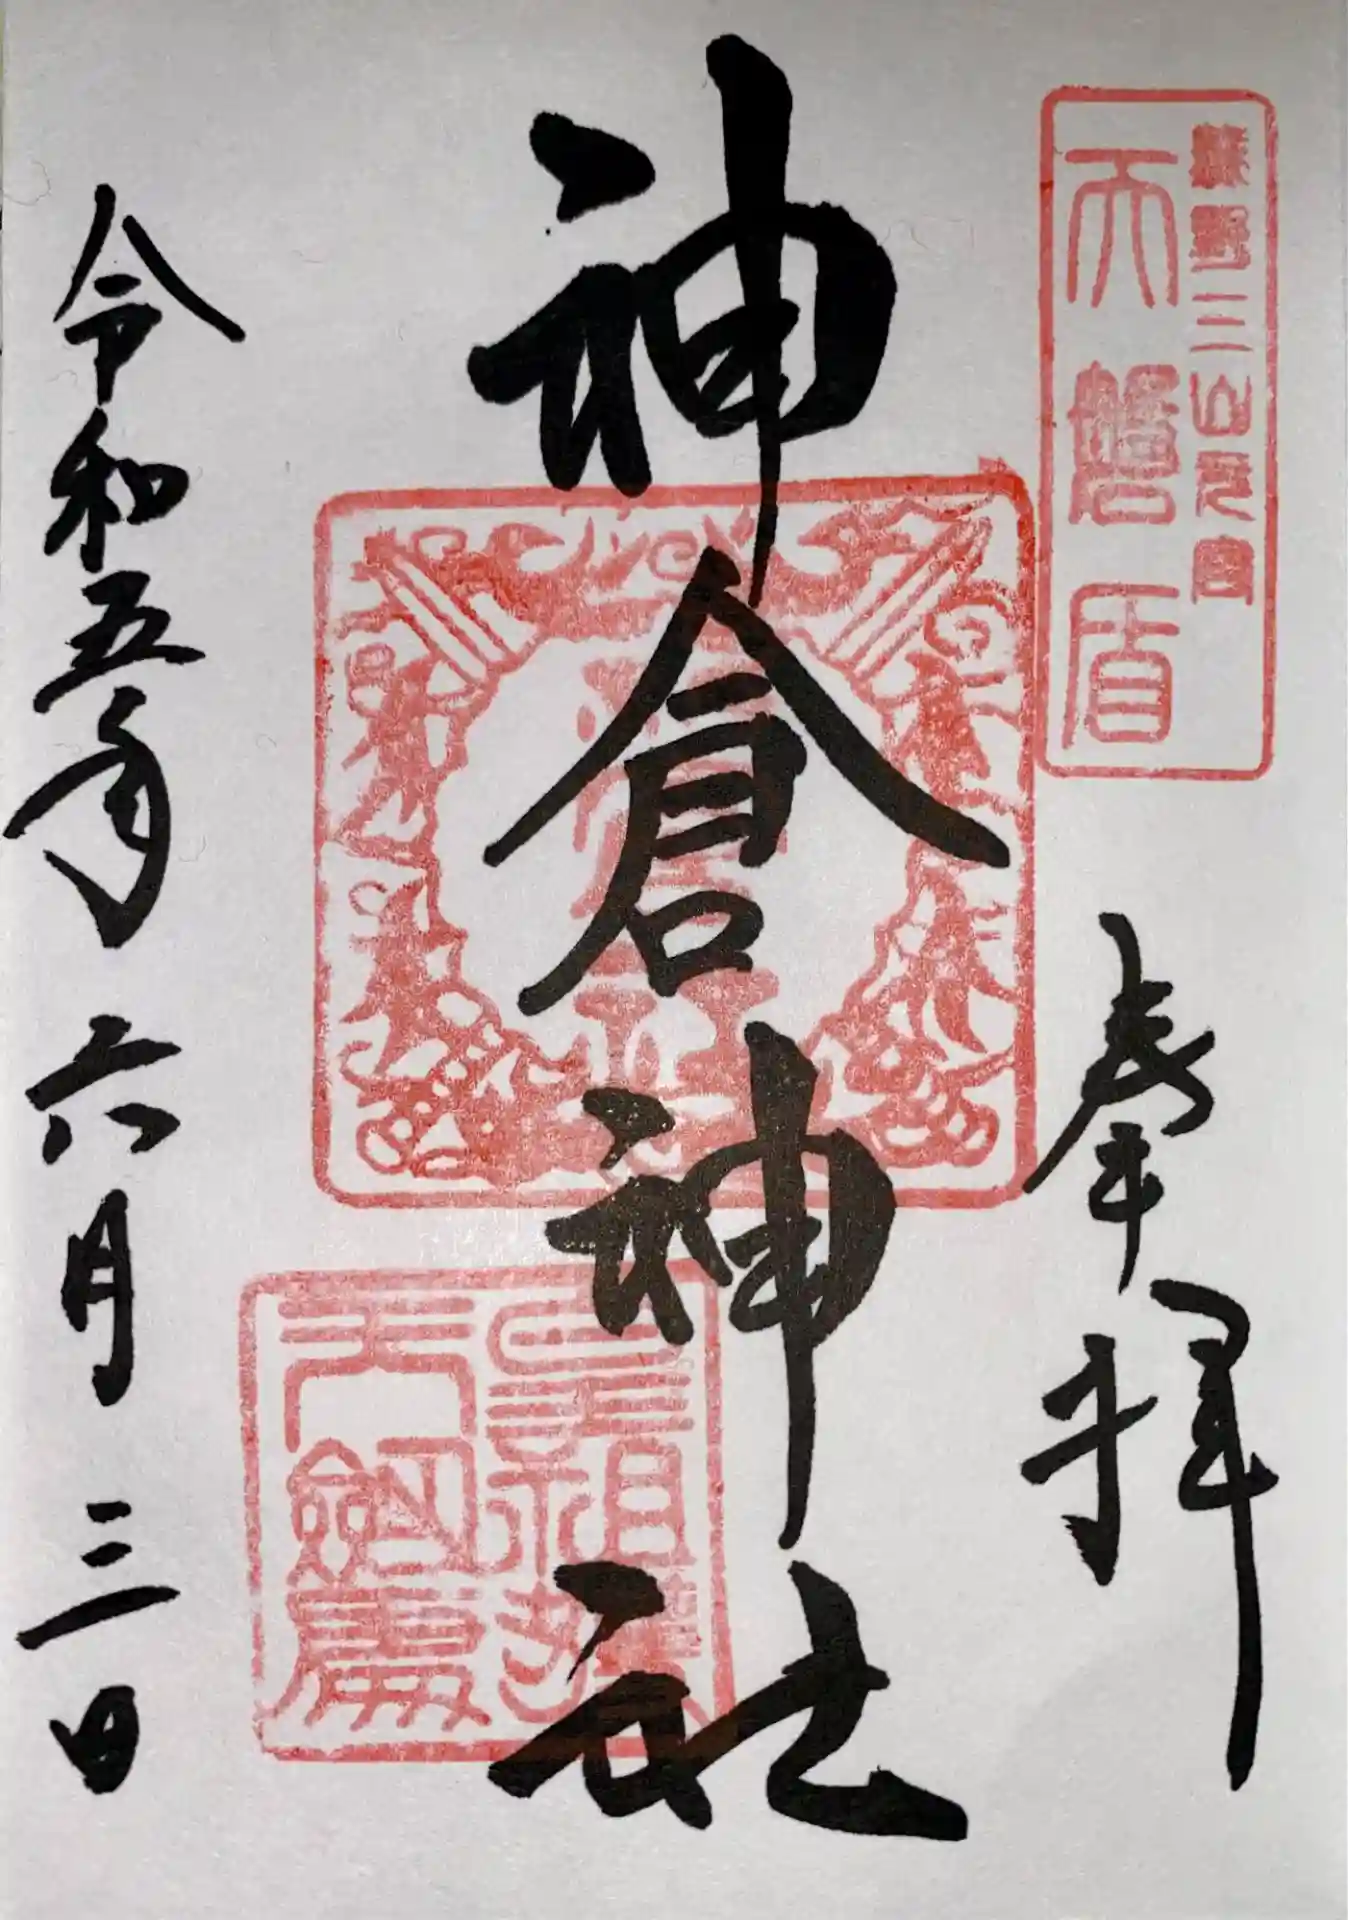 熊野三山元宮
天磐盾
奉拝
神倉神社
皇祖
天劔
令和五年六月三日